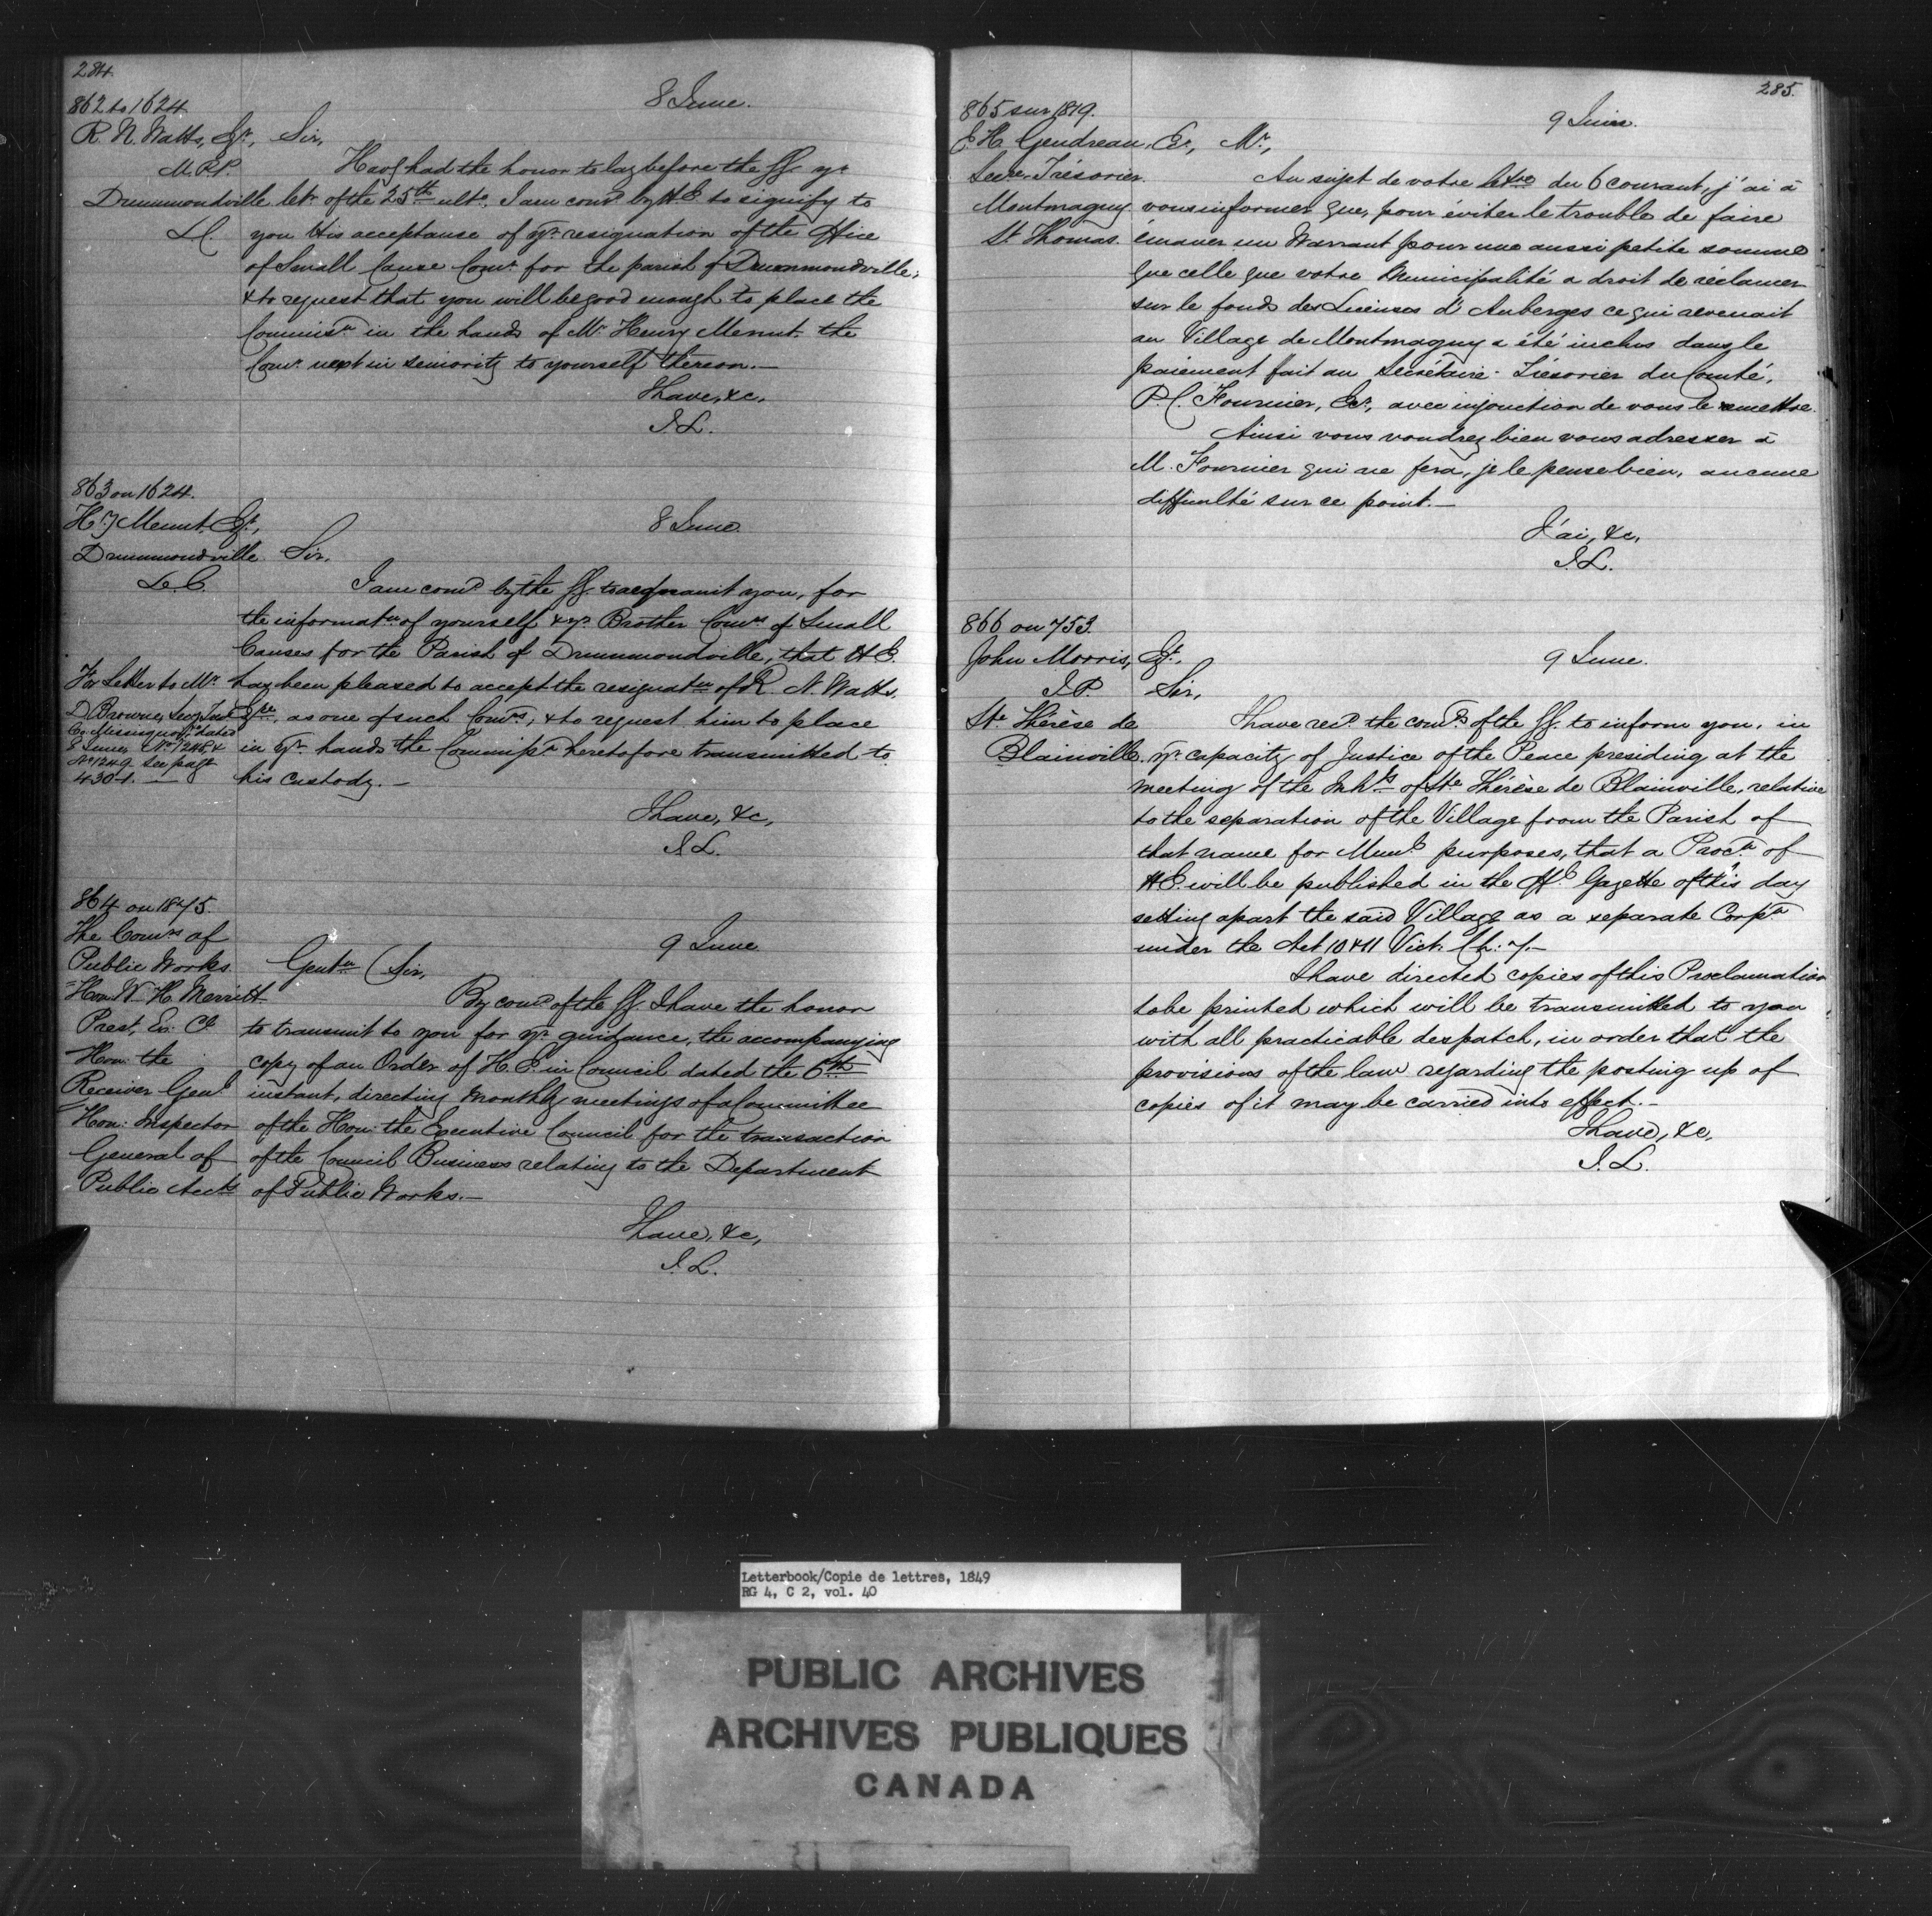 284.
862 to 1624
8 June.
R. N. Watts, Esqr., Sir,
M.P.P.
Havg had the honor to lay before the GG. yr
Drummondville letr of the 25th ulto. I am comd by H E to signify to
L.C. you His acceptance of yr resignation of the Office
of Small Cause Comr for the parish of Drummondville,
& to request that you will be good enough to place the
Commissn in the hands of Mr Henry Menut, the
Comr next in seniority to yourself thereon.—
I have, &c,
J. L.
863 on 1624.
Hy Menut, Esqr.,
8 June
Drummondville Sir,
L.C.
I am comd by the GG. to acquaint you, for
the informatn of yourself & yr Brother Comrs of Small
Causes for the Parish of Drummondville, that H E.
has been pleased to accept the resignatn of R. N. Watts,
Esqre, as one of such Comrs, & to request him to place
in yr hands the Commissn heretofore transmitted to
his custody.—
For Letter to Mr
D Browne, Secy Trea
Co. Missisquoi, dated
8 June, No 1248 &
No 1249 see page
430-1.—
I have, &c,
J L.
864 on 1875.
The Comrs of
9 June
Public Works
Gentn (Sir,
Hon. W H. Merritt
Prest, Ex. Cl
Hon: the
Receiver Genl
Hon: Inspector
General of
Public Acct
By comd of the GG. I have the honor
to transmit to you for yr guidance, the accompanying
copy of an Order of H. E. in Council dated the 6th
instant, directing Monthly meetings of a Committee
of the Hon: the Executive Council for the transaction
of the Council Business relating to the Department
of Public Works.—
I have, &c,
J. L.
285.
865 sur 1819.
9 Juin.
E. H. Gendreau, Er., Mr.,
Secre. Trésorier.
Montmagny
St Thomas.
Au sujet de votre lettre du 6 courant, j'ai à
vous informer que, pour éviter le trouble de faire
émaner un Warrant pour une aussi petite somme
que celle que votre Municipalité a droit de réclamer
sur le fonds des Licenses d'Auberges ce qui revenait
au Village de Montmagny a été inclus dans le
paiement fait au Secrétaire-Trésorier du Comté,
P. C. Fournier, Ecr., avec injonction de vous le remettre.
Ainsi vous voudrez bien vous adresser à
M. Fournier qui ne fera, je le pense bien, aucune
difficulté sur ce point.—
J'ai, &c,
J. L.
866 on 753.
John Morris, Esqr.,
9 June.
J. P. Sir,
Ste Thérèse de
Blainville.
I have recd the comds of the GG. to inform you, in
yr capacity of Justice of the Peace presiding at the
meeting of the Inhts of Ste Thérèse de Blainville, relative
to the separation of the Village from the Parish of
that name for Munl purposes, that a Procn of
H E. will be published in the Offl Gazette of this day
setting apart the said Village as a separate Corpn
under the Act 10 & 11 Vict. Ch: 7.—
I have directed copies of this Proclamation
to be printed which will be transmitted to you
with all practicable despatch, in order that the
provisions of the law regarding the posting up of
copies of it may be carried into effect.—
I have, &c,
J. L.
Letterbook/Copie de lettres, 1849
RG 4, C 2, vol. 40
PUBLIC ARCHIVES
ARCHIVES PUBLIQUES
CANADA